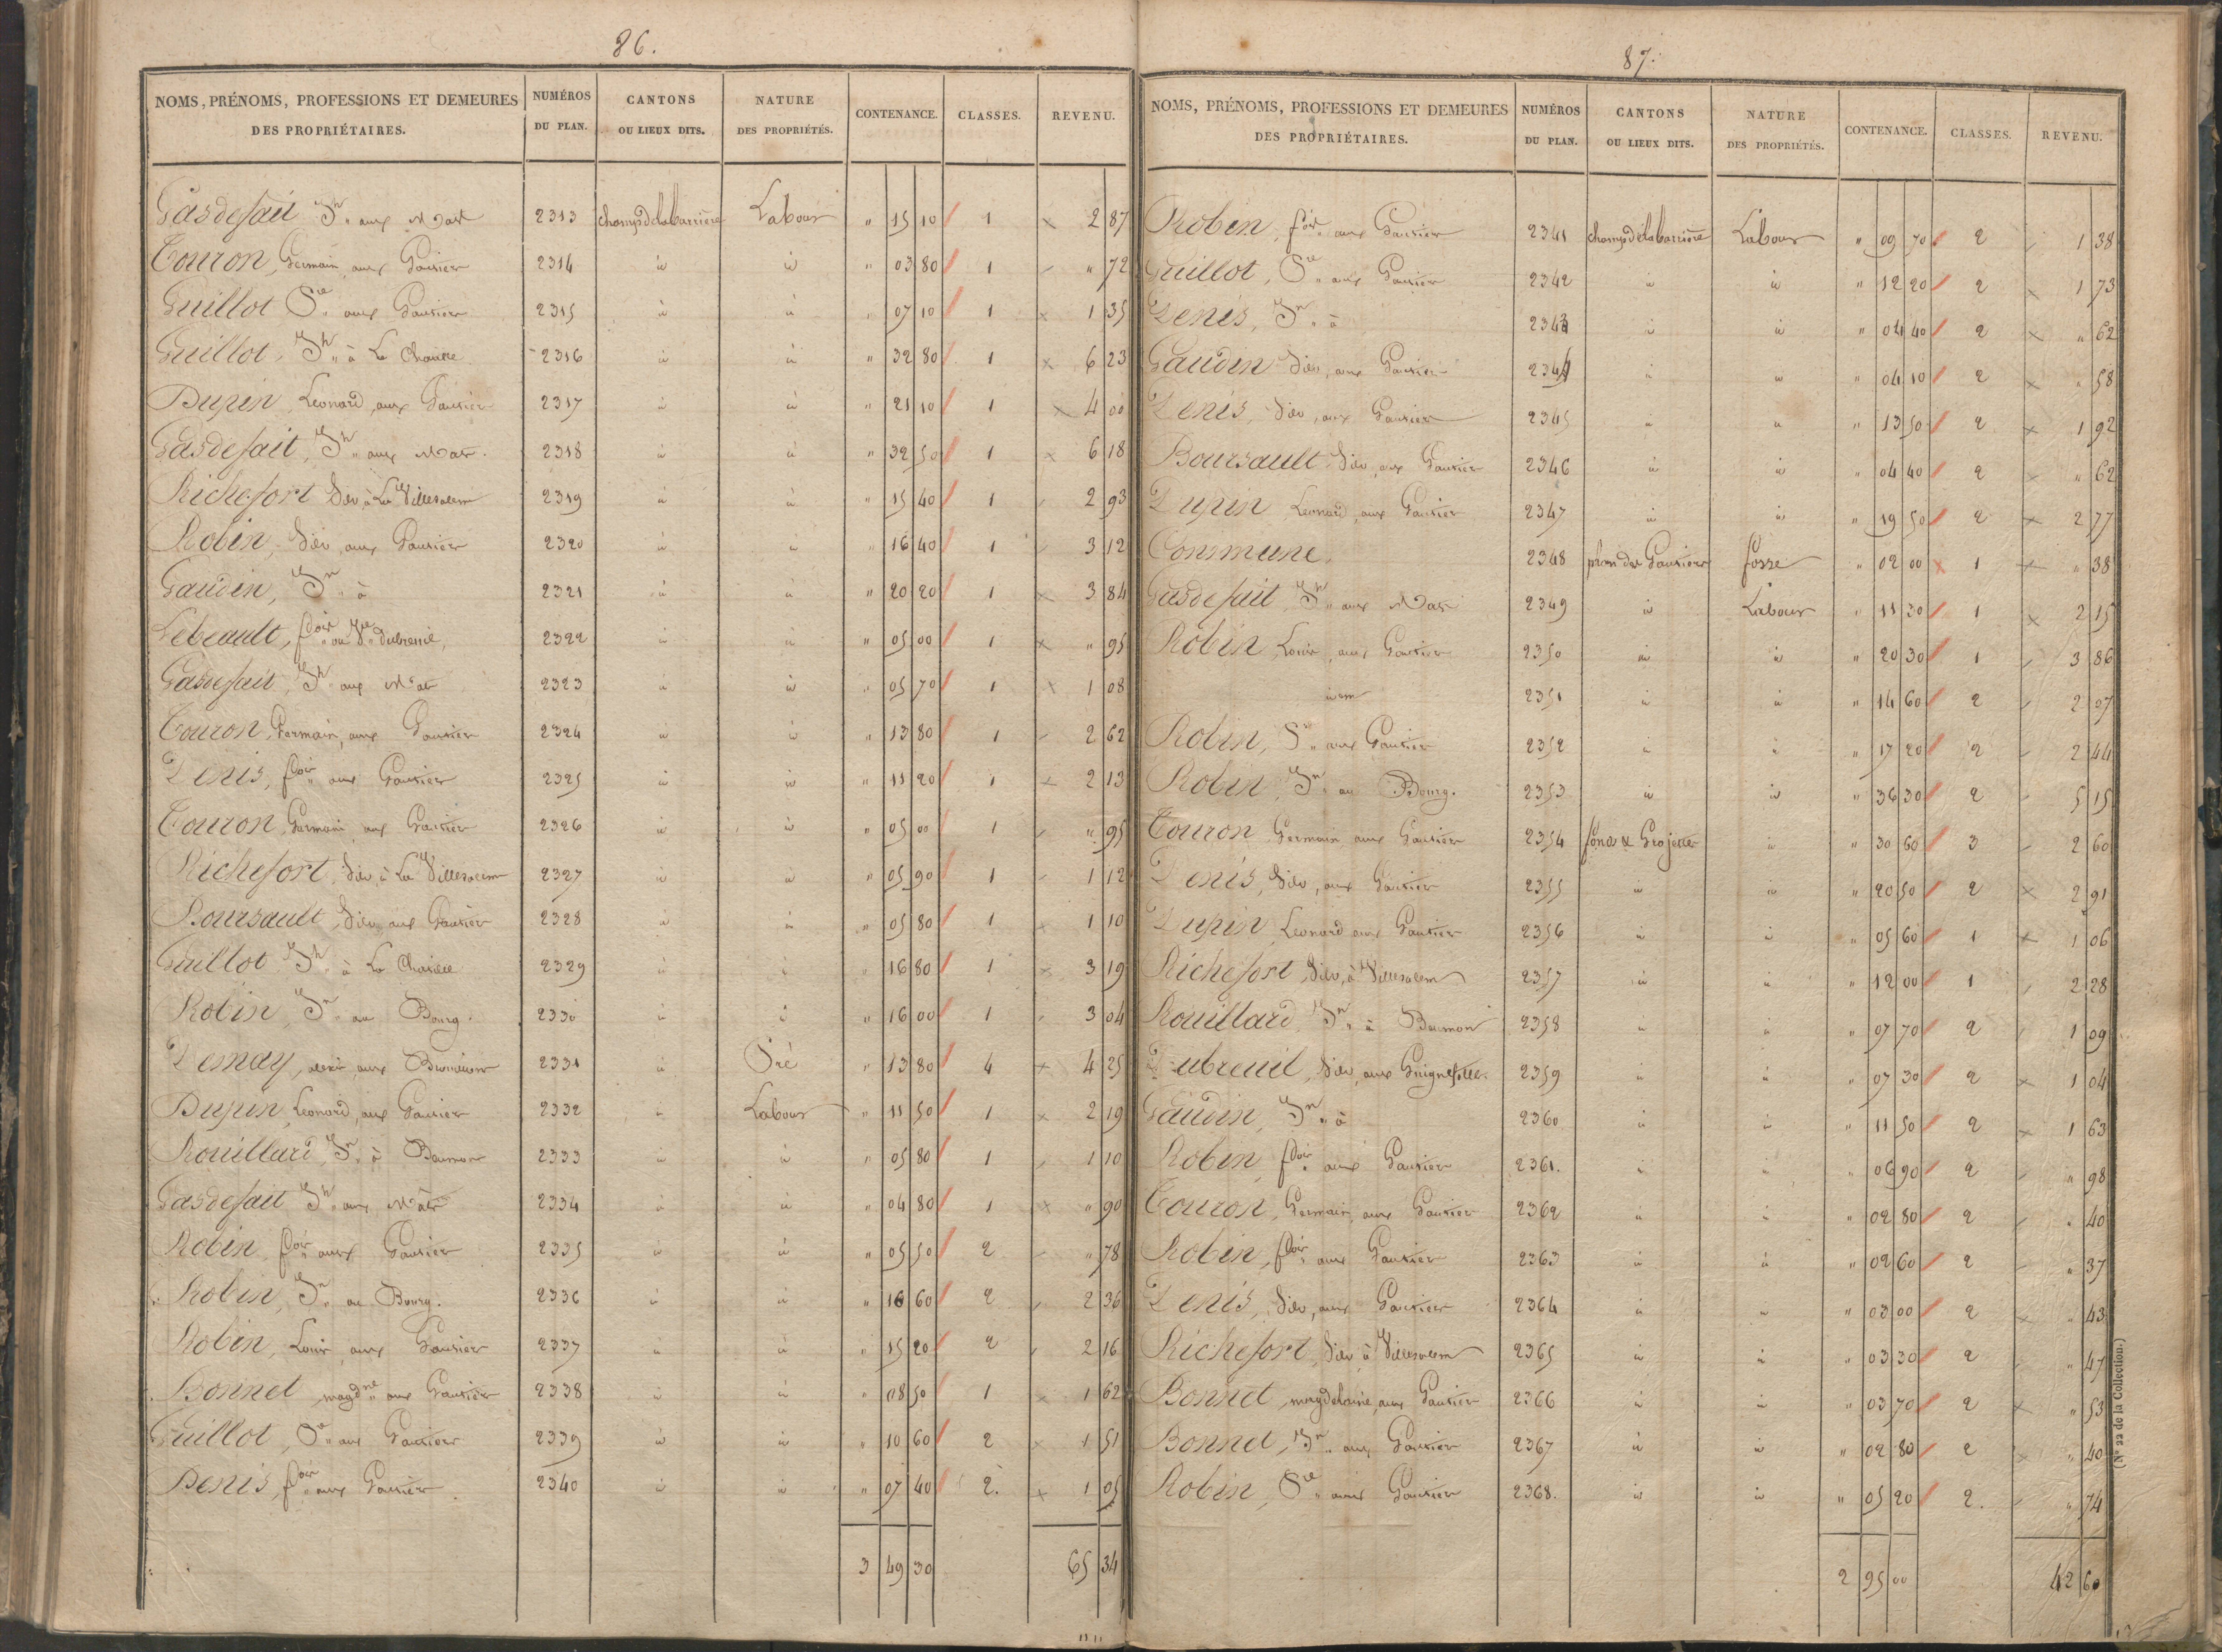 86.
NOMS, PRÉNOMS, PROFESSIONS ET DEMEURES DES PROPRIÉTAIRES. | NUMÉROS DU PLAN. | CANTONS OU LIEUX DITS. | NATURE DES PROPRIÉTÉS. | CONTENANCE. | CLASSES. | REVENU.
Gasdefait Jh aux | 2313 | champs de la barrière | Labour | " 15 10 | 1 | 2 87
Touron, Germain, aux Gautier | 2314 | id | id | " 03 80 | 1 | " 72
Guillot Pre aux Gautier | 2315 | id | id | " 07 10 | 1 | 1 35
Guillot, Jh à La | 2316 | id | id | " 32 80 | 1 | 6 23
Dupin, Leonard, aux Gautier | 2317 | id | id | " 21 10 | 1 | 4 00
Gasdefait, Jh aux | 2318 | id | id | " 32 50 | 1 | 6 18
Richefort Silv, à La Villesalem | 2319 | id | id | " 15 40 | 1 | 2 93
Robin, Silv, aux Gautier | 2320 | id | id | " 16 40 | 1 | 3 12
Gaudin, Jn à | 2321 | id | id | " 20 20 | 1 | 3 84
Lebeault, fois ou Ve dubreuil, | 2322 | id | id | " 05 00 | 1 | " 95
Gasdefait, Jh aux | 2323 | id | id | " 05 70 | 1 | 1 08
Touron, Germain, aux Gautier | 2324 | id | id | " 13 80 | 1 | 2 62
Denis, fois aux Gautier | 2325 | id | id | " 11 20 | 1 | 2 13
Touron, Germain aux Gautier | 2326 | id | id | " 05 00 | 1 | " 95
Richefort, Silv, à La Villesalem | 2327 | id | id | " 05 90 | 1 | 1 12
Boursault, Silv, aux Gautier | 2328 | id | id | " 05 80 | 1 | 1 10
Guillot Jh à La | 2329 | id | id | " 16 80 | 1 | 3 19
Robin, Jn au Bourg. | 2330 | id | id | " 16 00 | 1 | 3 04
Demay, aux | 2331 | id | Pré | " 13 80 | 4 | 4 25
Dupin, Leonard, aux Gautier | 2332 | id | Labour | " 11 50 | 1 | 2 19
Rouillard, Jn à Beumon | 2333 | id | id | " 05 80 | 1 | 1 10
Gasdefait Jh aux | 2334 | id | id | " 04 80 | 1 | " 90
Robin, fois aux Gautier | 2335 | id | id | " 05 50 | 2 | " 78
Robin, Jn au Bourg. | 2336 | id | id | " 16 60 | 2 | 2 36
Robin, Louis, aux Gautier | 2337 | id | id | " 15 20 | 2 | 2 16
Bonnet, magdne aux Gautier | 2338 | id | id | " 08 50 | 1 | 1 62
Guillot, Pre aux Gautier | 2339 | id | id | " 10 60 | 2 | 1 51
Denis, fois aux Gautier | 2340 | id | id | " 07 40 | 2. | 1 05
3 49 30 | 65 34
87.
NOMS, PRÉNOMS, PROFESSIONS ET DEMEURES DES PROPRIÉTAIRES. | NUMÉROS DU PLAN. | CANTONS OU LIEUX DITS. | NATURE DES PROPRIÉTÉS. | CONTENANCE. | CLASSES. | REVENU.
Robin, fois aux Gautier | 2341 | champs de la barrière | Labour | " 09 70 | 2 | 1 38
Guillot, Pre aux Gautier | 2342 | id | id | " 12 20 | 2 | 1 73
Denis, Jn à | 2343 | id | id | " 04 40 | 2 | " 62
Gaudin Silv, aux Gautier | 2344 | id | id | " 04 10 | 2 | " 58
Denis, Silv, aux Gautier | 2345 | id | id | " 13 50 | 2 | 1 92
Boursault Silv, aux Gautier | 2346 | id | id | " 04 40 | 2 | " 62
Dupin Leonard, aux Gautier | 2347 | id | id | " 19 50 | 2 | 2 77
Commune, | 2348 | des Gautier | fosse | " 02 00 | 1 | " 38
Gasdefait, Jh aux | 2349 | id | Labour | " 11 30 | 1 | 2 15
Robin Louis, aux Gautier | 2350 | id | id | " 20 30 | 1 | 3 86
idem | 2351 | id | id | " 14 60 | 2 | 2 07
Robin, Pre aux Gautier | 2352 | id | id | " 17 20 | 2 | 2 44
Robin, Jn au Bourg. | 2353 | id | id | " 36 30 | 2 | 5 15
Touron Germain aux Gautier | 2354 | | id | " 30 60 | 3 | 2 60
Denis, Silv, aux Gautier | 2355 | id | id | " 20 50 | 2 | 2 91
Dupin, Leonard aux Gautier | 2356 | id | id | " 05 60 | 1 | 1 06
Richefort, Silv, à Villesalem | 2357 | id | id | " 12 00 | 1 | 2 28
Rouillard, Jn à Beumon | 2358 | id | id | " 07 70 | 2 | 1 09
Dubreuil, Silv, aux | 2359 | id | id | " 07 30 | 2 | 1 04
Gaudin, Jn à | 2360 | id | id | " 11 50 | 2 | 1 63
Robin, fois aux Gautier | 2361. | id | id | " 06 90 | 2 | " 98
Touron, Germain, aux Gautier | 2362 | id | id | " 02 80 | 2 | " 40
Robin, fois aux Gautier | 2363 | id | id | " 02 60 | 2 | " 37
Denis, Silv, aux Gautier | 2364 | id | id | " 03 00 | 2 | " 43
Richefort, Silv à Villesalem | 2365 | id | id | " 03 30 | 2 | " 47
Bonnet, magdelaine, aux Gautier | 2366 | id | id | " 03 70 | 2 | " 53
Bonnet, Jn aux Gautier | 2367 | id | id | " 02 80 | 2 | " 40
Robin, Pre aux Gautier | 2368. | id | id | " 05 20 | 2. | " 74
2 95 00 | 42 60
(N° 22 de la Collection.)